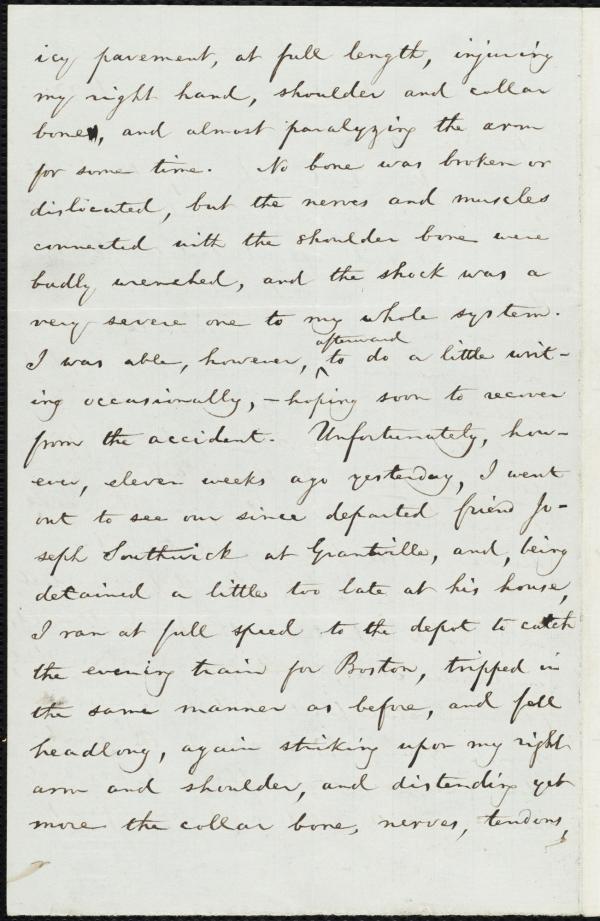 icy pavement, at full length, injuring
my right hand, shoulder and collar
bone, and almost paralyzing the arm
for some time. No bone was broken or
dislocated, but the nerves and muscles
connected with the shoulder bone were
badly wrenched, and the shock was a
very severe one to my whole system.
afterward
I was able, however, ‸ to do a little writ-
ing occasionally, – hoping soon to recover
from the accident. Unfortunately, how-
ever, eleven weeks ago yesterday, I went
out to see our since departed friend Jo-
seph Southwick at Grantville, and, being
detained a little too late at his house,
I ran at full speed to the depot to catch
the evening train for Boston, tripped in
the same manner as before, and fell
headlong, again striking upon my right
arm and shoulder, and distending yet
more the collar bone, nerves, tendons,